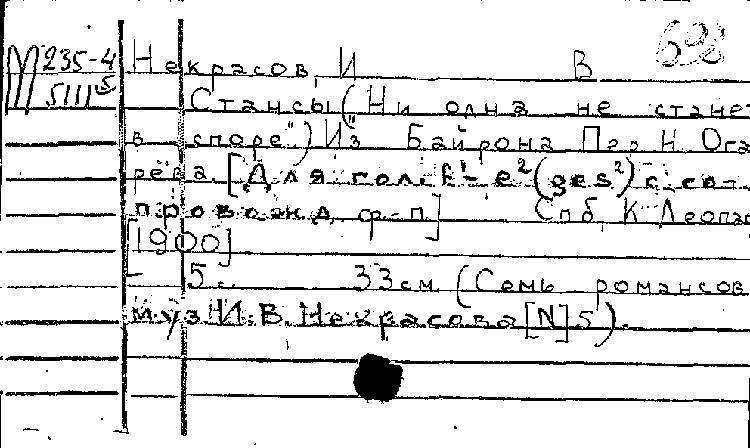 698
М 235-4 Некрасов, И В
5111 5 Стансы ("Ни одна не стане
в споре") Из Байрона Пер. Н Ога
рёва. [Для гол. h¹- e²(ges²) с со-
провожд. ф-п] Спб, К Леопа
[1900]
5 с. 33 см (Семь романсов
муз И. В. Некрасова [N] 5).